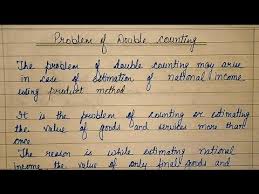 Problem of Double counting
The problem of double counting may arise
in case of estimation of national income
using product method
It is the problem of counting or estimating
the value of goods and services more than
once
The reason is while estimating national
income the value of only final goods and